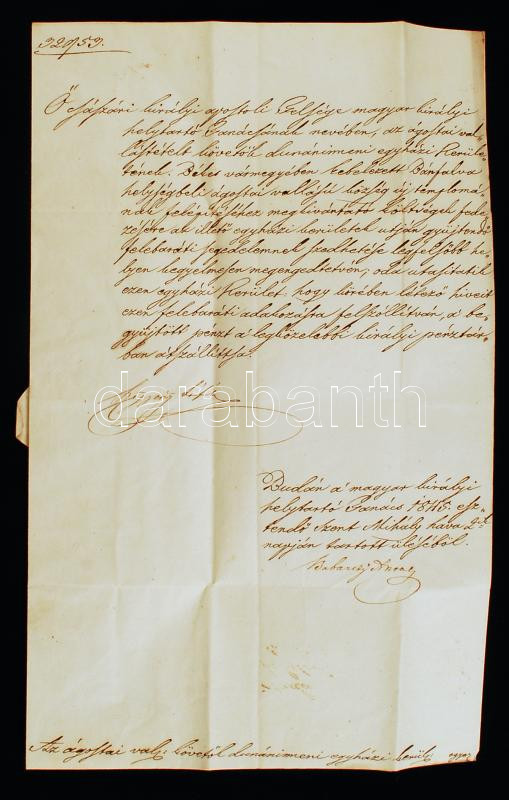 32953.
Ő császári királyi apostoli Felsége magyar királyi
helytartó Tanácsának nevében, az ágostai val-
lástételt követők dunáninneni egyházi Kerüle-
tének. Békes vármegyében bekelezett Bánfalva
helységbeli ágostai vallású község új templomá-
nak felépítéséhez megkivántató költségek fede-
zésére az illető egyházi kerületek utján gyűjtendő
felebaráti segedelemnek szedhetése legfelsőbb he-
lyen kegyelmesen megengedtetvén; oda utasittatik
ezen egyházi Kerület, hogy körében létező hiveit
ezen felebaráti adakozásra felszóllitván, a be-
gyűjtött pénzt a legközelebbi királyi pénztár-
ban átszállittsa.
darabanth
Budán a' magyar királyi
helytartó Tanács 1845 esz-
tendő Szent Mihály hava
napján tartott üléséből.
Az ágostai vall: követők dunáninneni egyházi kerül: